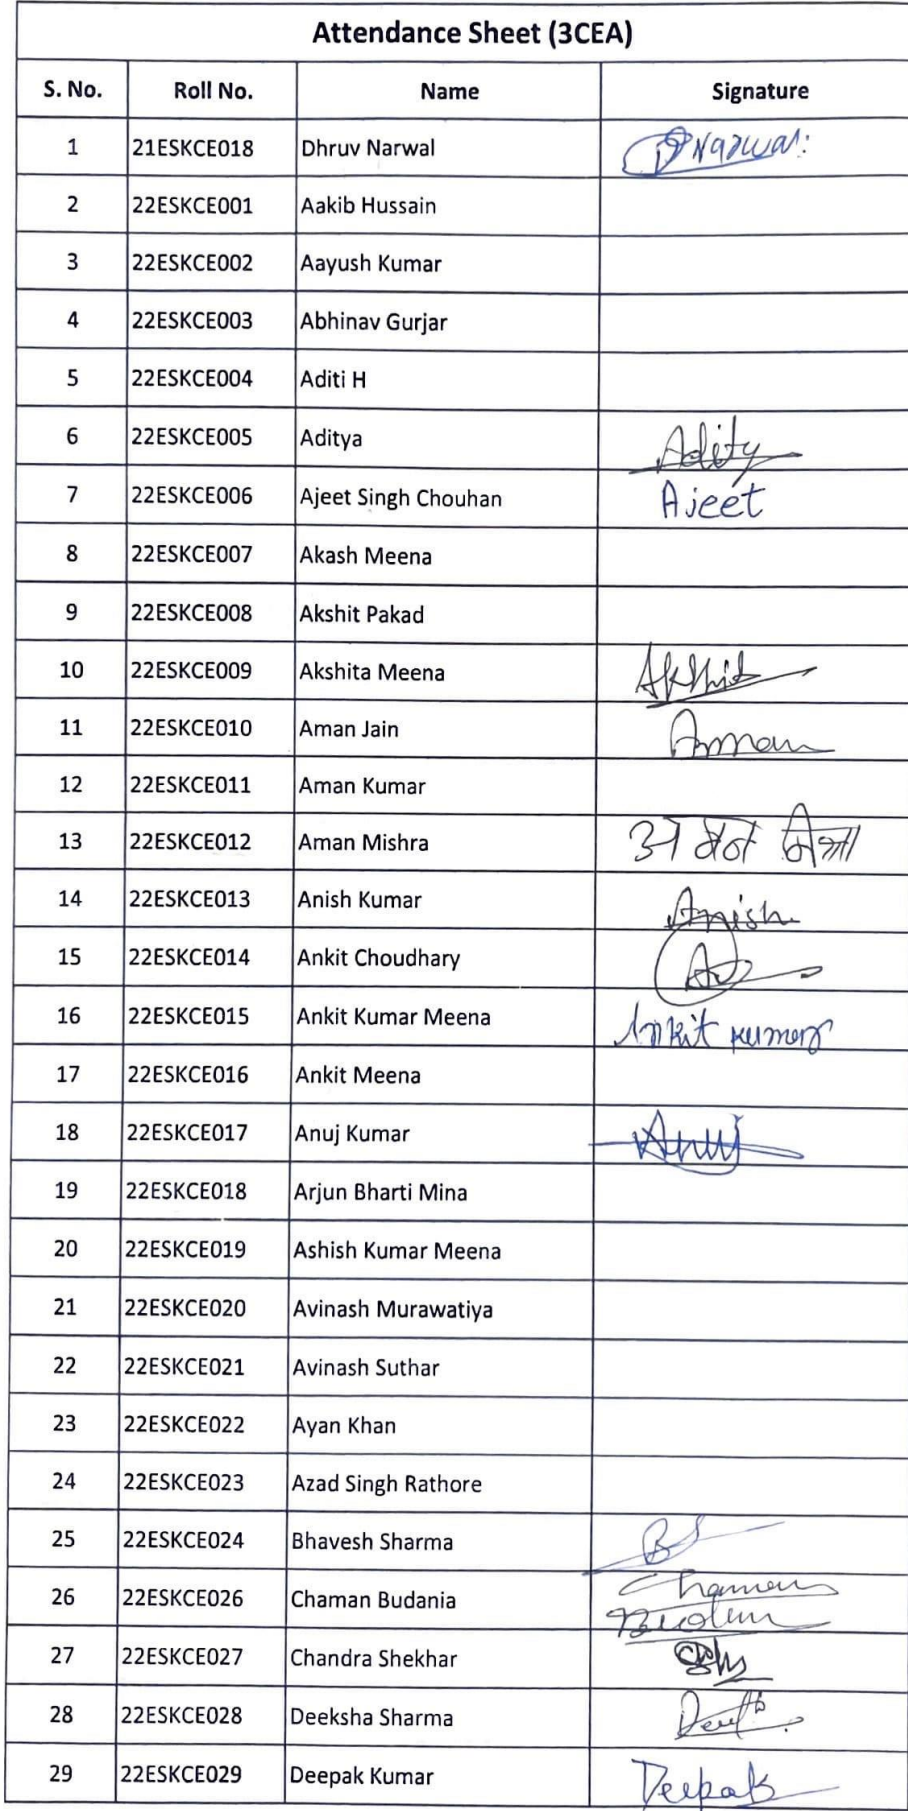 Attendance Sheet (3CEA)
S. No. Roll No. Name Signature
1 21ESKCE018 Dhruv Narwal DNarwal
2 22ESKCE001 Aakib Hussain
3 22ESKCE002 Aayush Kumar
4 22ESKCE003 Abhinav Gurjar
5 22ESKCE004 Aditi H
6 22ESKCE005 Aditya Adity
7 22ESKCE006 Ajeet Singh Chouhan Ajeet
8 22ESKCE007 Akash Meena
9 22ESKCE008 Akshit Pakad
10 22ESKCE009 Akshita Meena Akshit
11 22ESKCE010 Aman Jain Aman
12 22ESKCE011 Aman Kumar
13 22ESKCE012 Aman Mishra अमन मिश्रा
14 22ESKCE013 Anish Kumar Anish
15 22ESKCE014 Ankit Choudhary
16 22ESKCE015 Ankit Kumar Meena Ankit kumar
17 22ESKCE016 Ankit Meena
18 22ESKCE017 Anuj Kumar Anuj
19 22ESKCE018 Arjun Bharti Mina
20 22ESKCE019 Ashish Kumar Meena
21 22ESKCE020 Avinash Murawatiya
22 22ESKCE021 Avinash Suthar
23 22ESKCE022 Ayan Khan
24 22ESKCE023 Azad Singh Rathore
25 22ESKCE024 Bhavesh Sharma BS
26 22ESKCE026 Chaman Budania Chaman
27 22ESKCE027 Chandra Shekhar
28 22ESKCE028 Deeksha Sharma
29 22ESKCE029 Deepak Kumar Deepak